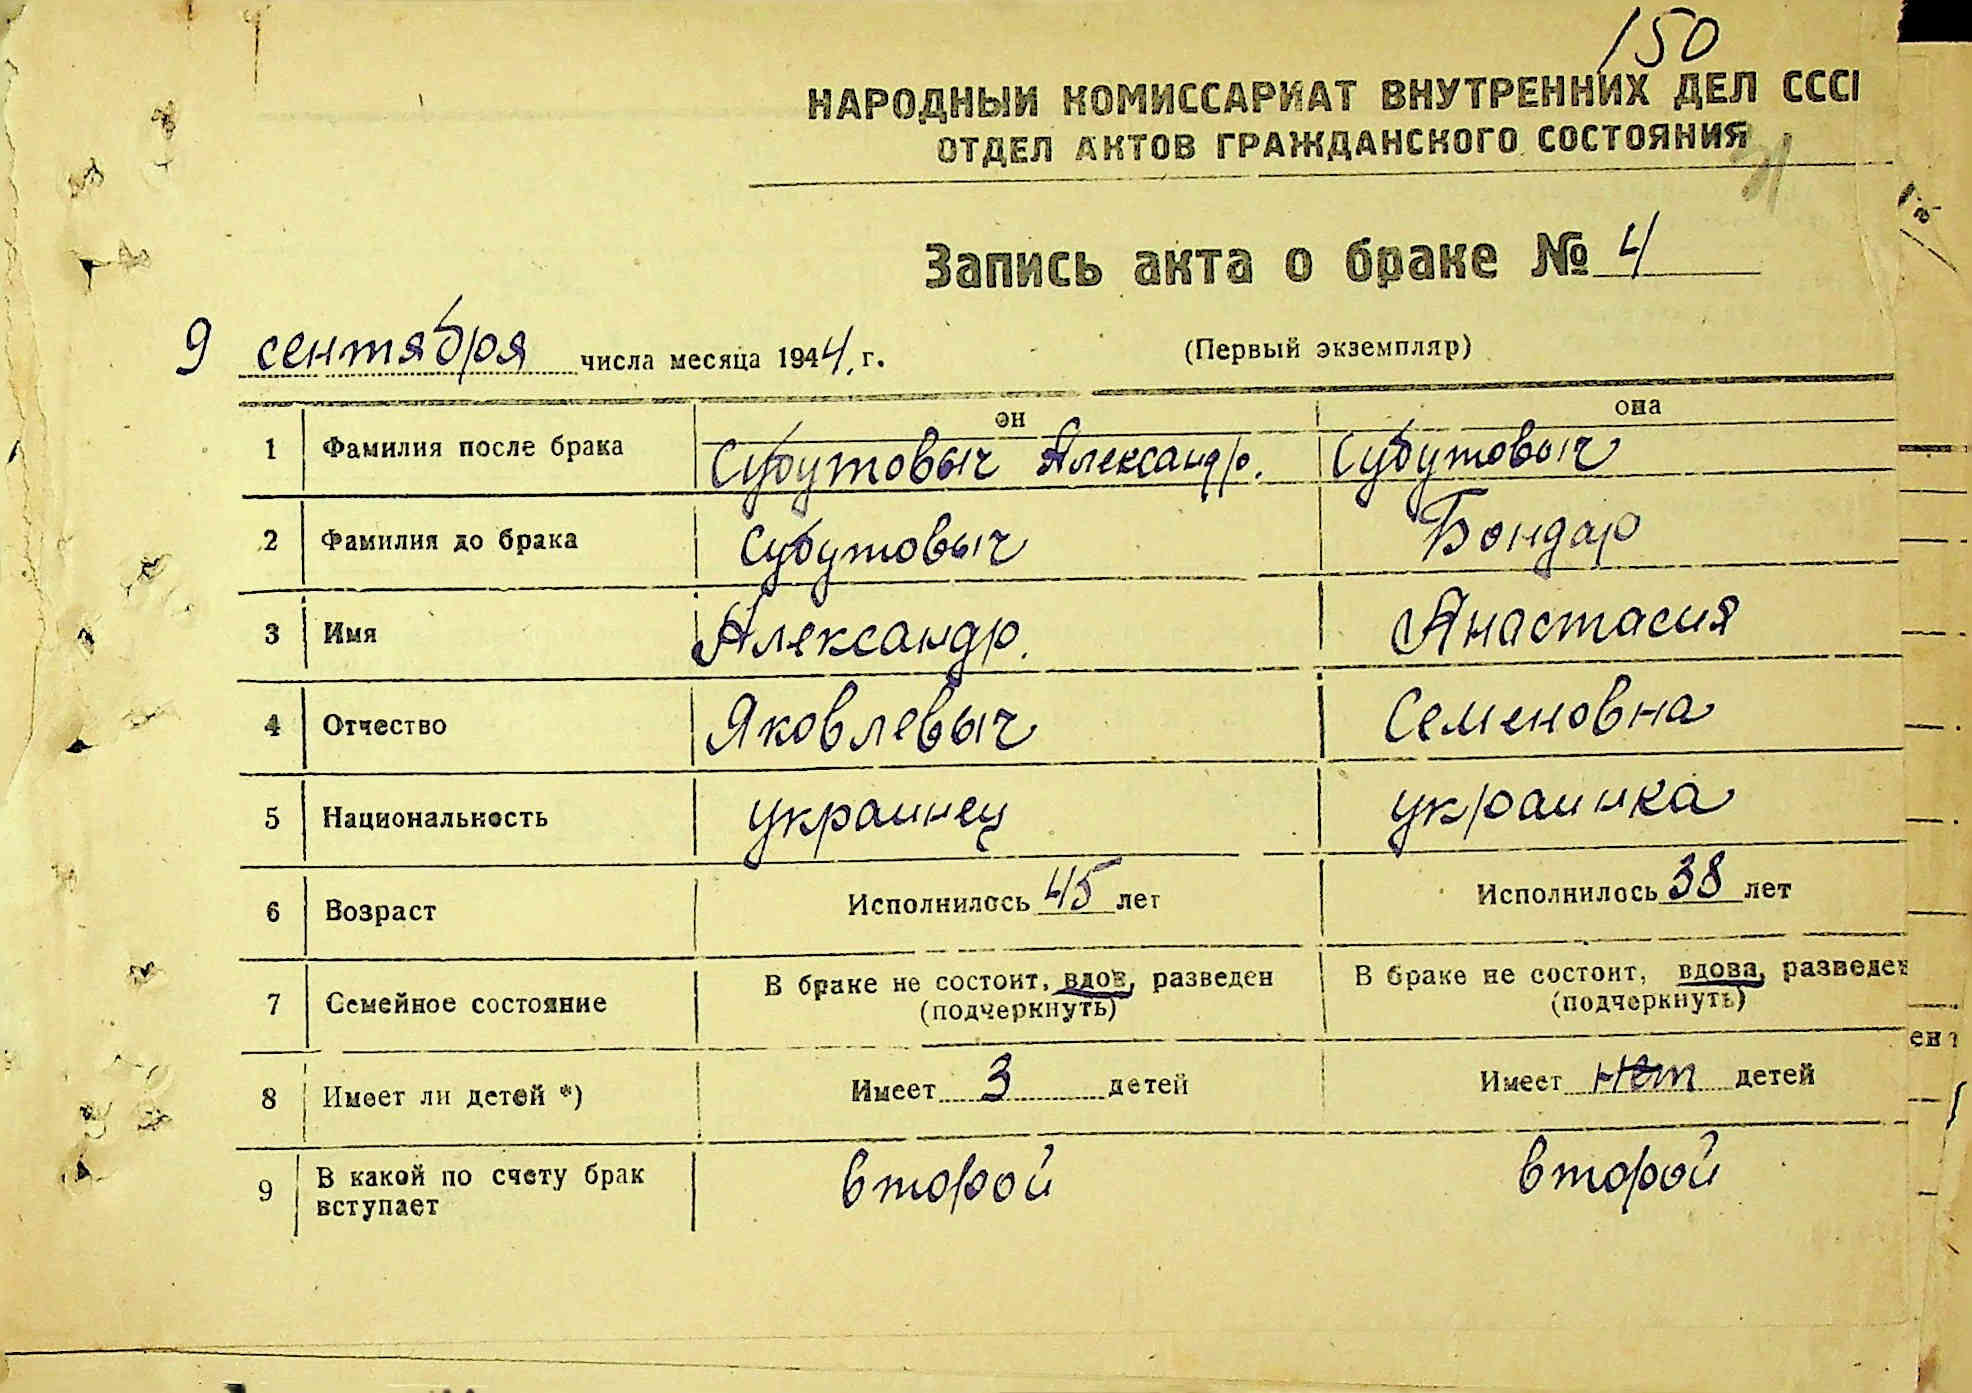 150
НАРОДНЫЙ КОМИССАРИАТ ВНУТРЕННИХ ДЕЛ СССР
ОТДЕЛ АКТОВ ГРАЖДАНСКОГО СОСТОЯНИЯ
Запись акта о браке № 4
9 сентября числа месяца 1944 г. (Первый экземпляр)
он она
1 Фамилия после брака Субутовыч Александр. Субутовыч
2 Фамилия до брака Субутовыч Бондар
3 Имя Александр. Анастасия
4 Отчество Яковлевыч Семеновна
5 Национальность украинец украинка
6 Возраст Исполнилось 45 лет Исполнилось 38 лет
7 Семейное состояние В браке не состоит, вдов, разведен (подчеркнуть) В браке не состоит, вдова, разведен (подчеркнуть)
8 Имеет ли детей *) Имеет 3 детей Имеет нет детей
9 В какой по счету брак вступает второй второй